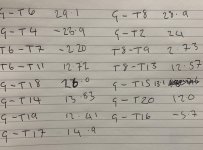 G-T6 29.1 G-T8 28.9
G-T4 -23.9 G-T2 24
T6-T7 -220 T8-T9 2.73
T6-T11 12.72 T8-T13 12.57
G-T18 G-T15 13.1
G-T14 13.83 G-T20 120
G-T19 12.41 G-T16 -5.7
G-T17 14.9